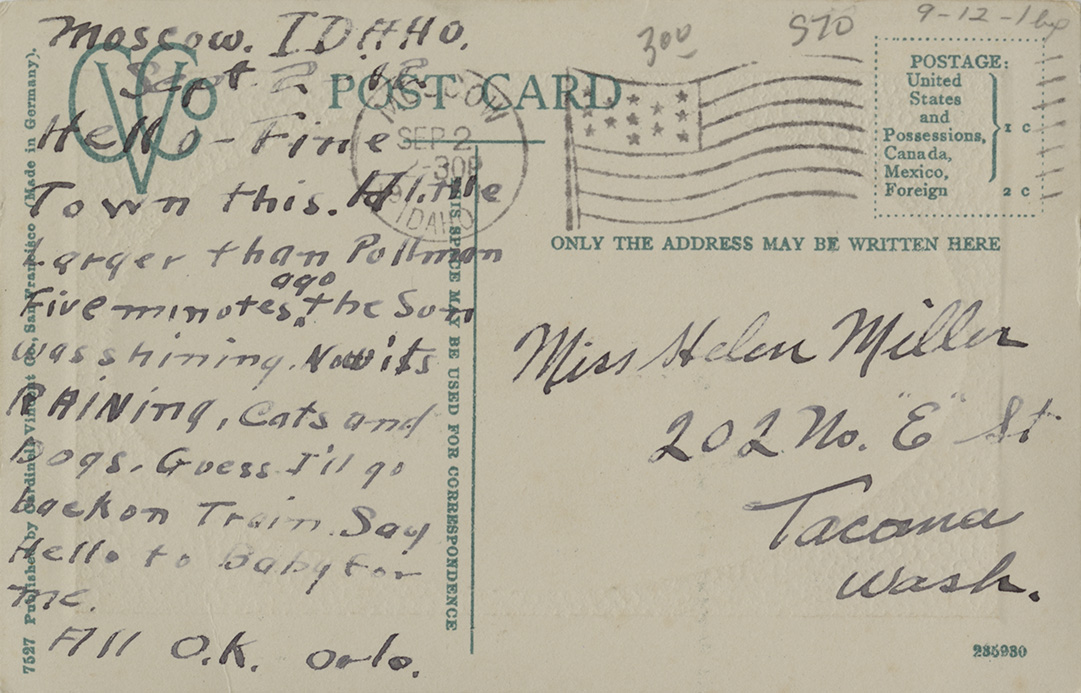 Moscow. IDAHO.
Sept 2 - 12.
Hello - Fine
Town this. A little
Larger than Pullman
Five minotes ago the Sun
was shining. Now its
RAINing, Cats and
Dogs. Guess I'll go
back on Train. Say
Hello to Baby for
me.
All O.K. Orlo.
7527 Published by Cardinell-Vincent Co., San Francisco (Made in Germany).
CVCo
POST CARD
THIS SPACE MAY BE USED FOR CORRESPONDENCE
MOSCOW
SEP 2
-30P
IDAHO
300
STO
9-12-16
POSTAGE:
United
States
and
Possessions,
Canada,
Mexico,
1 c
Foreign 2 c
ONLY THE ADDRESS MAY BE WRITTEN HERE
Miss Helen Miller
202 No. "E" St
Tacoma
Wash.
235930